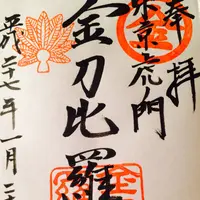 奉拝
東京虎ノ門
金刀比羅
平成二十七年一月二